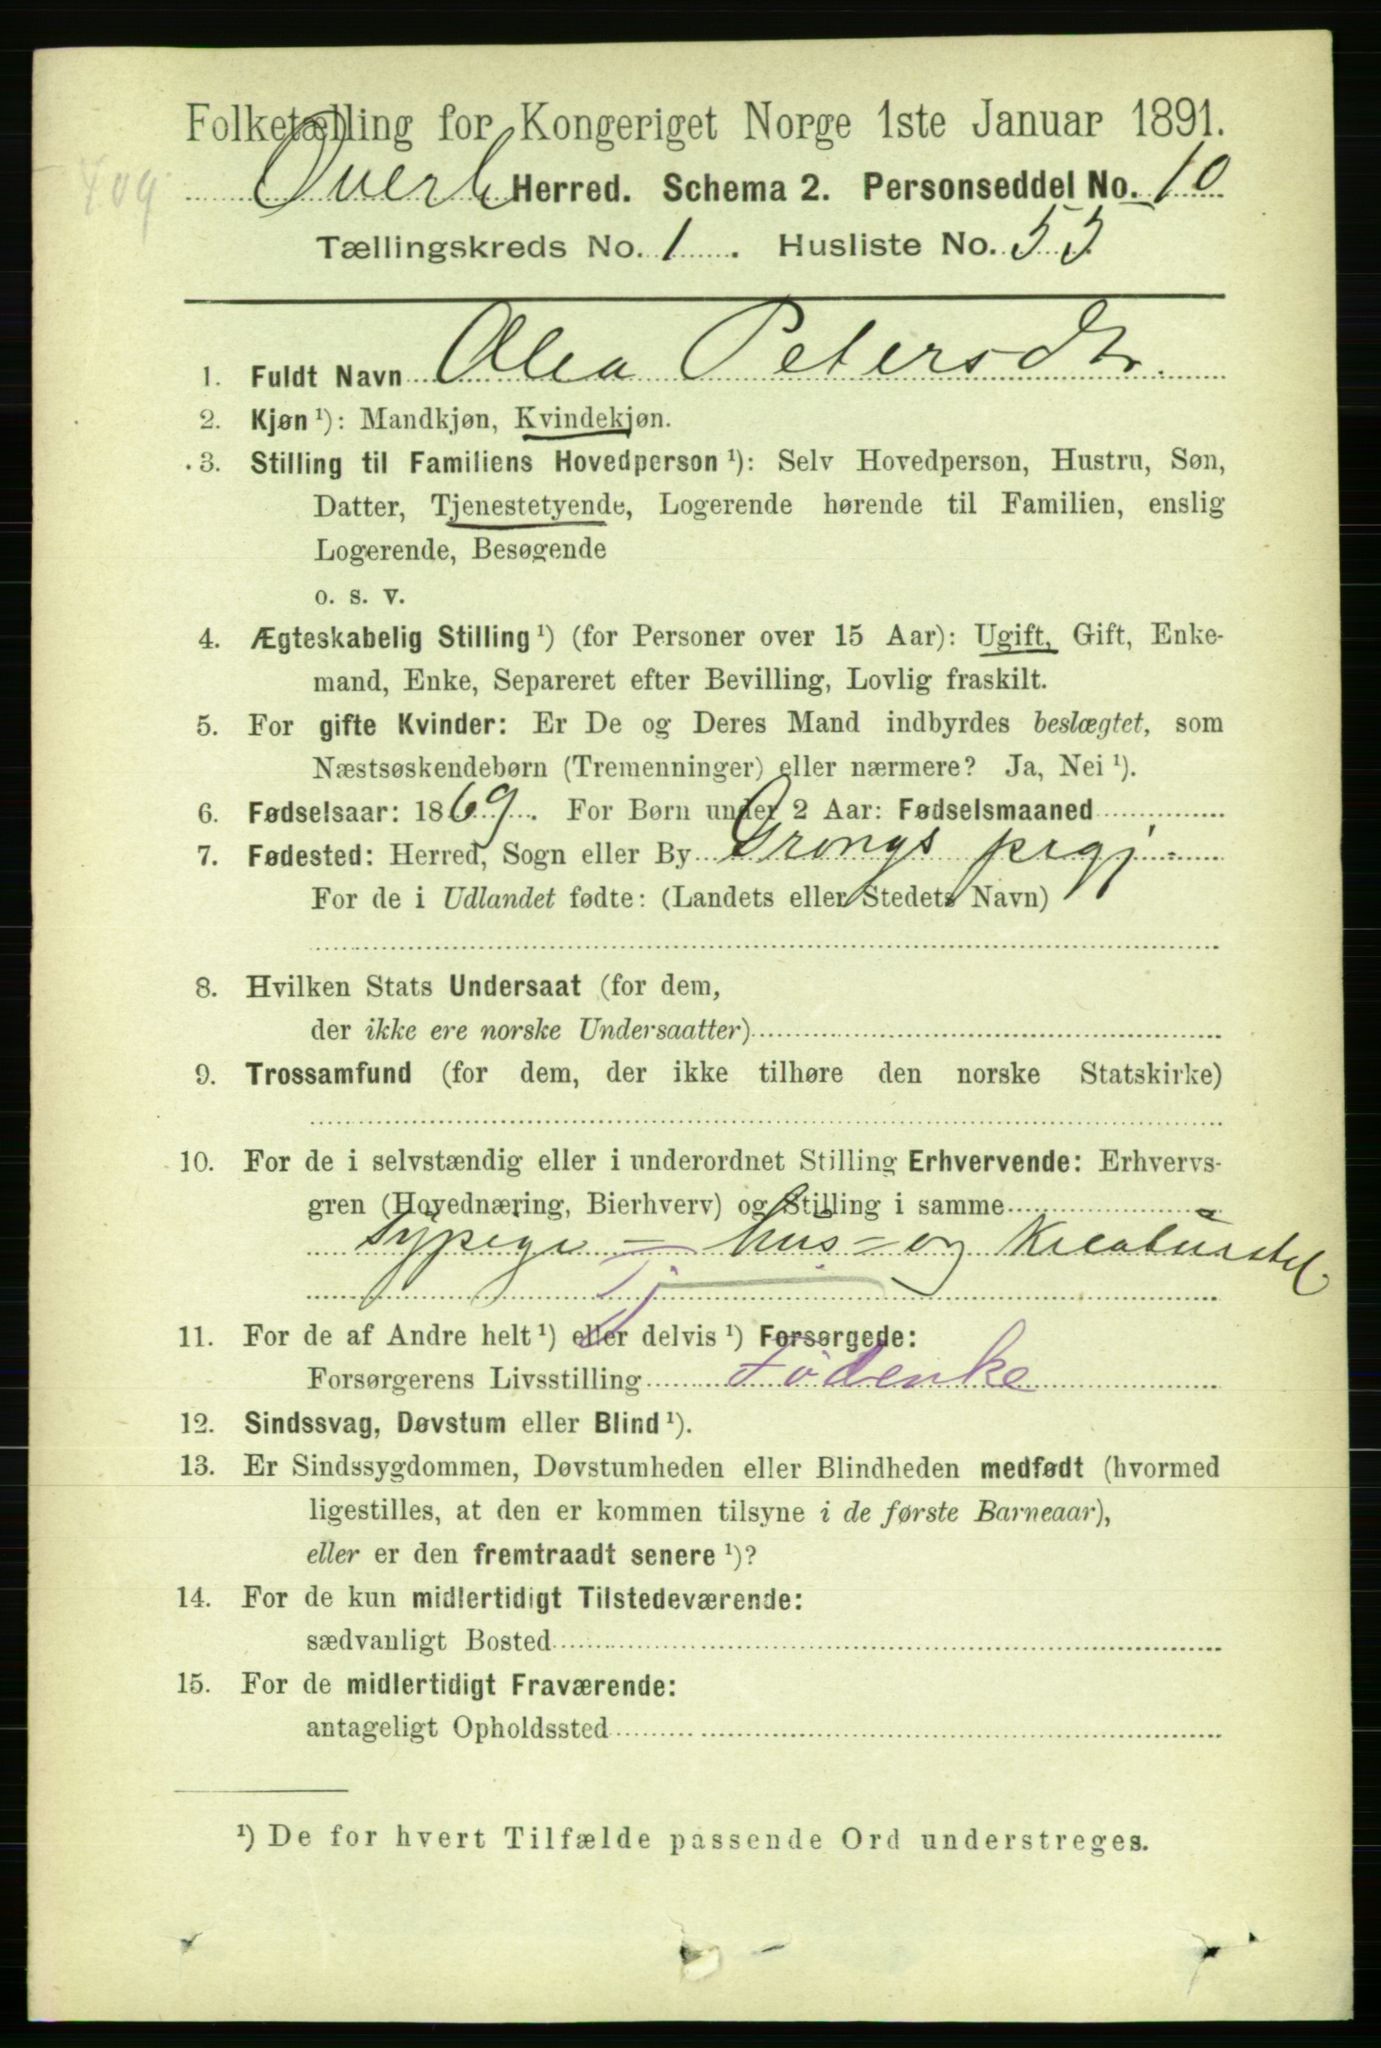 Folketælling for Kongeriget Norge 1ste Januar 1891.
409
Overh Herred. Schema 2. Personseddel No. 10
Tællingskreds No. 1. Husliste No. 53
1. Fuldt Navn Olea Petersdtr.
2. Kjøn ¹): Mandkjøn, Kvindekjøn.
3. Stilling til Familiens Hovedperson ¹): Selv Hovedperson, Hustru, Søn,
Datter, Tjenestetyende, Logerende hørende til Familien, enslig
Logerende, Besøgende
o. s. v.
4. Ægteskabelig Stilling ¹) (for Personer over 15 Aar): Ugift, Gift, Enke-
mand, Enke, Separeret efter Bevilling, Lovlig fraskilt.
5. For gifte Kvinder: Er De og Deres Mand indbyrdes beslægtet, som
Næstsøskendebørn (Tremenninger) eller nærmere? Ja, Nei ¹).
6. Fødselsaar: 1869. For Børn under 2 Aar: Fødselsmaaned
7. Fødested: Herred, Sogn eller By Grongs prgj
For de i Udlandet fødte: (Landets eller Stedets Navn)
8. Hvilken Stats Undersaat (for dem,
der ikke ere norske Undersaatter)
9. Trossamfund (for dem, der ikke tilhøre den norske Statskirke)
10. For de i selvstændig eller i underordnet Stilling Erhvervende: Erhvervs-
gren (Hovednæring, Bierhverv) og Stilling i samme
Sypige - hus- og Kreaturstel
Tj
11. For de af Andre helt ¹) eller delvis ¹) Forsørgede:
Forsørgerens Livsstilling Fødenke
12. Sindssvag, Døvstum eller Blind ¹).
13. Er Sindssygdommen, Døvstumheden eller Blindheden medfødt (hvormed
ligestilles, at den er kommen tilsyne i de første Barneaar),
eller er den fremtraadt senere ¹)?
14. For de kun midlertidigt Tilstedeværende:
sædvanligt Bosted
15. For de midlertidigt Fraværende:
antageligt Opholdssted
¹) De for hvert Tilfælde passende Ord understreges.